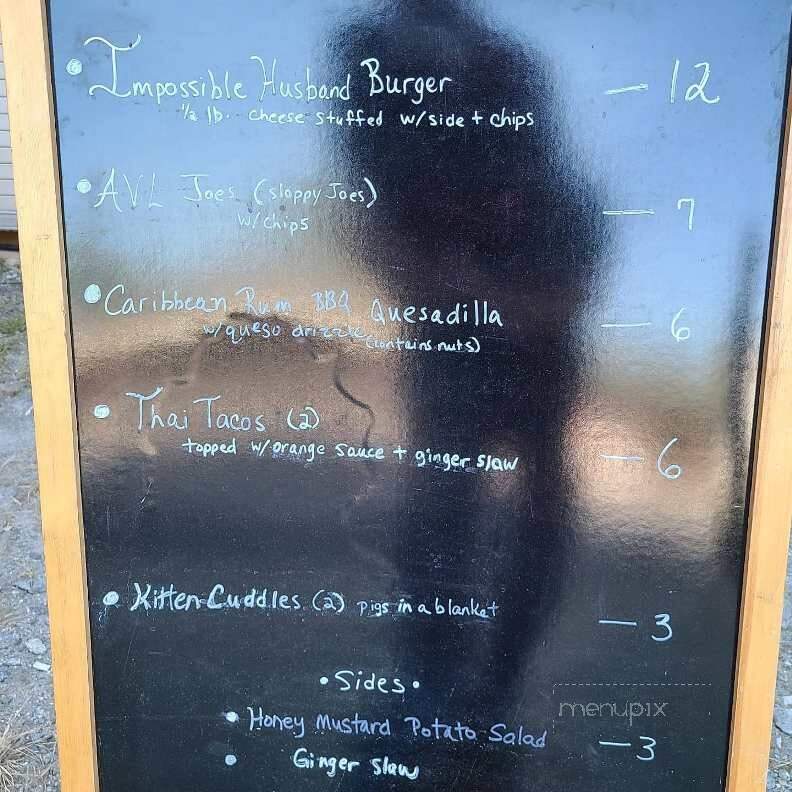 • Impossible Husband Burger — 12
1/2 lb. cheese stuffed w/side + chips
• AVL Joes (sloppy Joes) — 7
w/chips
• Caribbean Rum BBQ Quesadilla — 6
w/queso drizzle (contains nuts)
• Thai Tacos (2)
topped w/orange sauce + ginger slaw — 6
• Kitten Cuddles (2) pigs in a blanket — 3
• Sides •
• Honey Mustard Potato Salad — 3
• Ginger Slaw
menupix